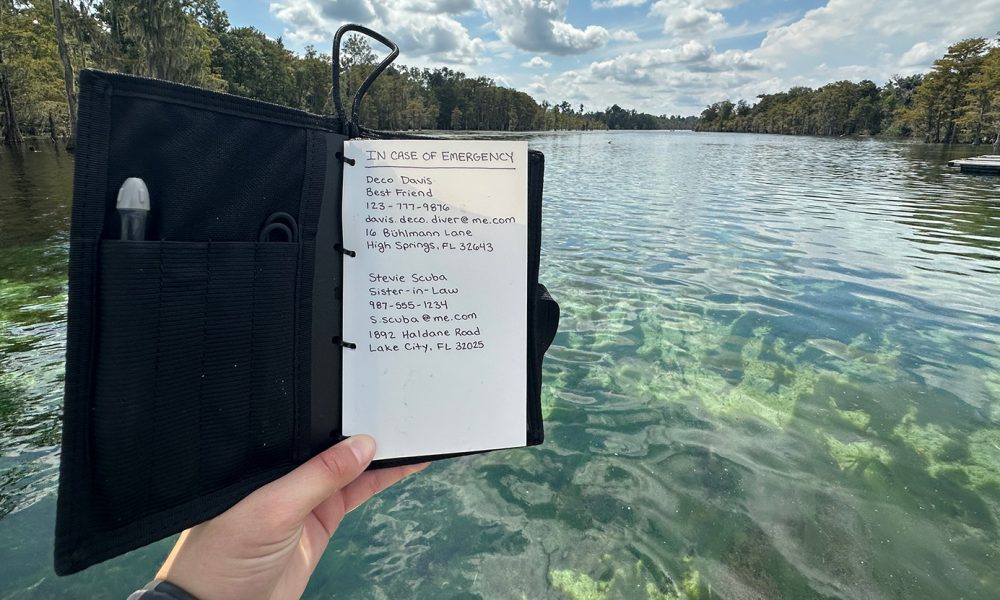 IN CASE OF EMERGENCY
Deco Davis
Best Friend
123-777-9876
davis.deco.diver@me.com
16 Bühlmann Lane
High Springs, FL 32643
Stevie Scuba
Sister-in-Law
987-555-1234
s.scuba@me.com
1892 Haldane Road
Lake City, FL 32025